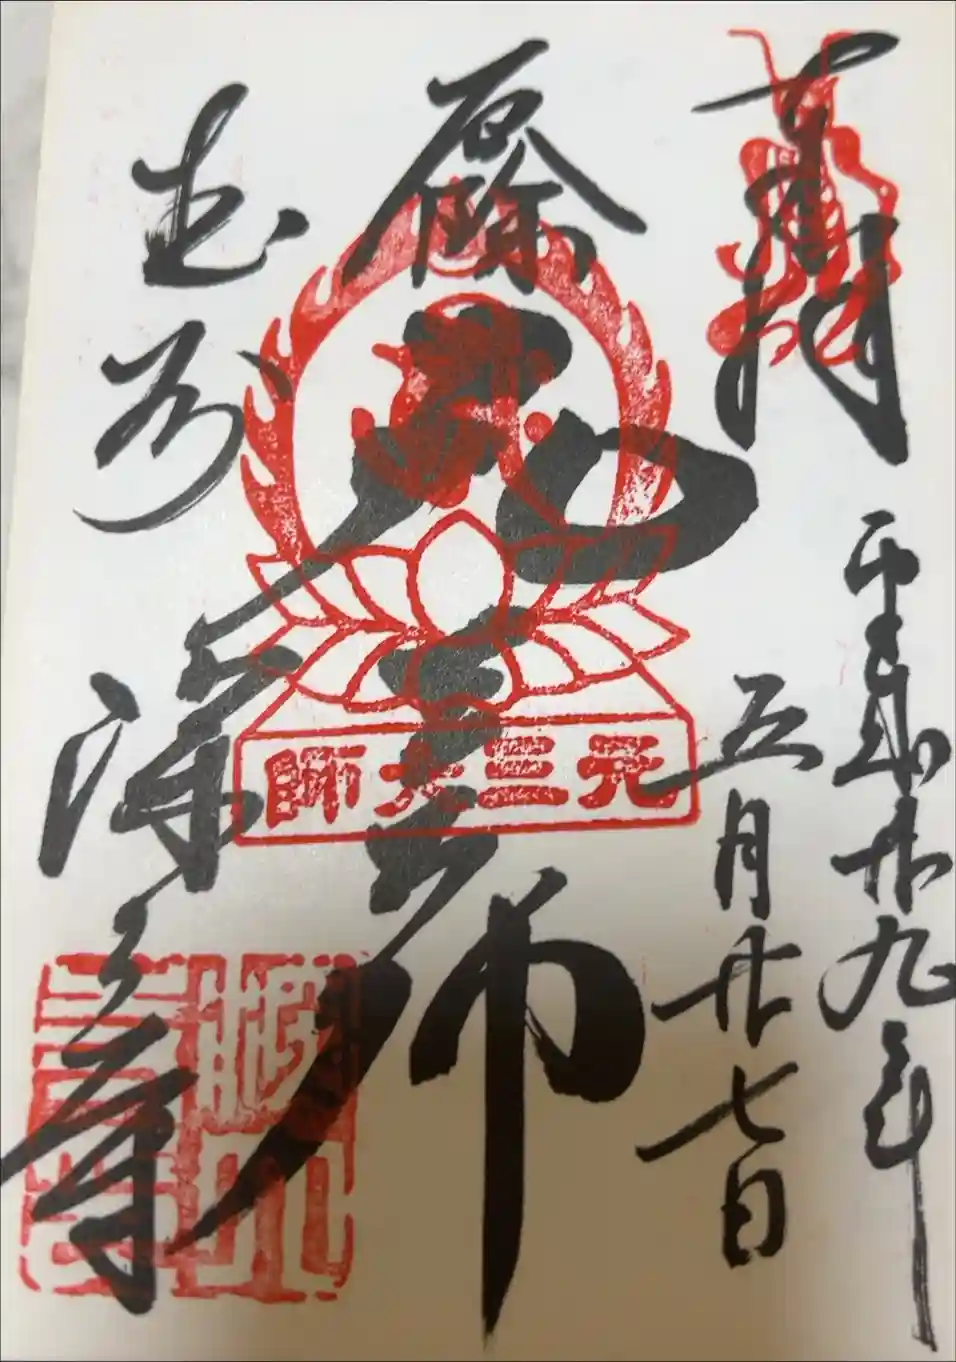 奉拝
平成廿九年
五月廿七日
厄除
元三大師
元三大師
武州
深大寺